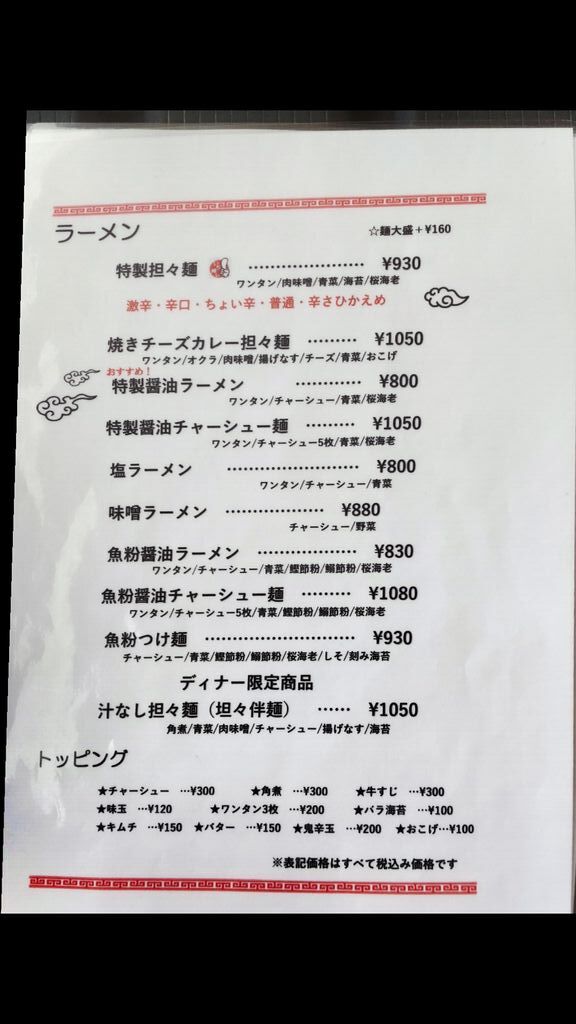 ラーメン ☆麺大盛＋¥160
特製担々麺 ………………… ¥930
ワンタン/肉味噌/青菜/海苔/桜海老
激辛・辛口・ちょい辛・普通・辛さひかえめ
焼きチーズカレー担々麺 ……… ¥1050
ワンタン/オクラ/肉味噌/揚げなす/チーズ/青菜/おこげ
おすすめ！
特製醤油ラーメン ………… ¥800
ワンタン/チャーシュー/青菜/桜海老
特製醤油チャーシュー麺 ……… ¥1050
ワンタン/チャーシュー5枚/青菜/桜海老
塩ラーメン …………………… ¥800
ワンタン/チャーシュー/青菜
味噌ラーメン ……………… ¥880
チャーシュー/野菜
魚粉醤油ラーメン ……………… ¥830
ワンタン/チャーシュー/青菜/鰹節粉/鰯節粉/桜海老
魚粉醤油チャーシュー麺 ………… ¥1080
ワンタン/チャーシュー5枚/青菜/鰹節粉/鰯節粉/桜海老
魚粉つけ麺 ………………………… ¥930
チャーシュー/青菜/鰹節粉/鰯節粉/桜海老/しそ/刻み海苔
ディナー限定商品
汁なし担々麺（坦々伴麺） …… ¥1050
角煮/青菜/肉味噌/チャーシュー/揚げなす/海苔
トッピング
★チャーシュー …¥300 ★角煮 …¥300 ★牛すじ …¥300
★味玉 …¥120 ★ワンタン3枚 …¥200 ★バラ海苔 …¥100
★キムチ …¥150 ★バター …¥150 ★鬼辛玉 …¥200 ★おこげ…¥100
※表記価格はすべて税込み価格です